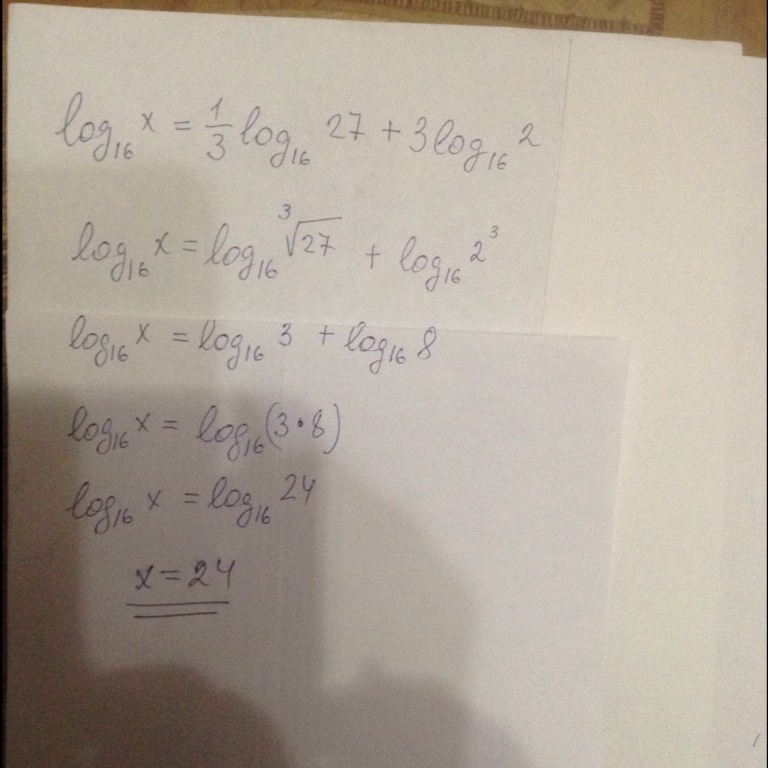 log₁₆ x = 1/3 log₁₆ 27 + 3 log₁₆ 2
log₁₆ x = log₁₆ ³√27 + log₁₆ 2³
log₁₆ x = log₁₆ 3 + log₁₆ 8
log₁₆ x = log₁₆ (3·8)
log₁₆ x = log₁₆ 24
x = 24